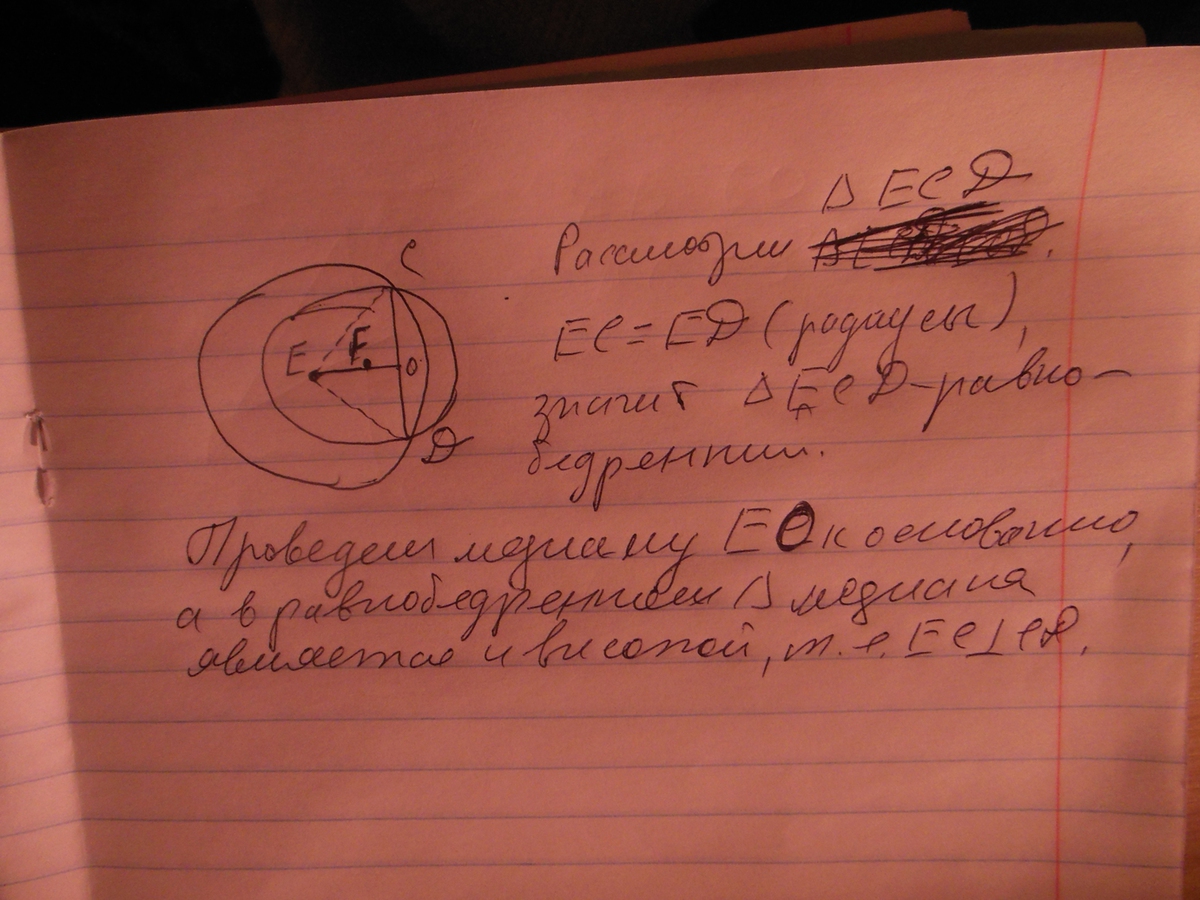 Δ ECD
Рассмотрим
EC = ED (радиусы),
значит Δ ECD - равно-
бедренный.
C
E
F
O
D
Проведем медиану EO к основанию,
а в равнобедренном Δ медиана
является и высотой, т.е. EC⊥CD.